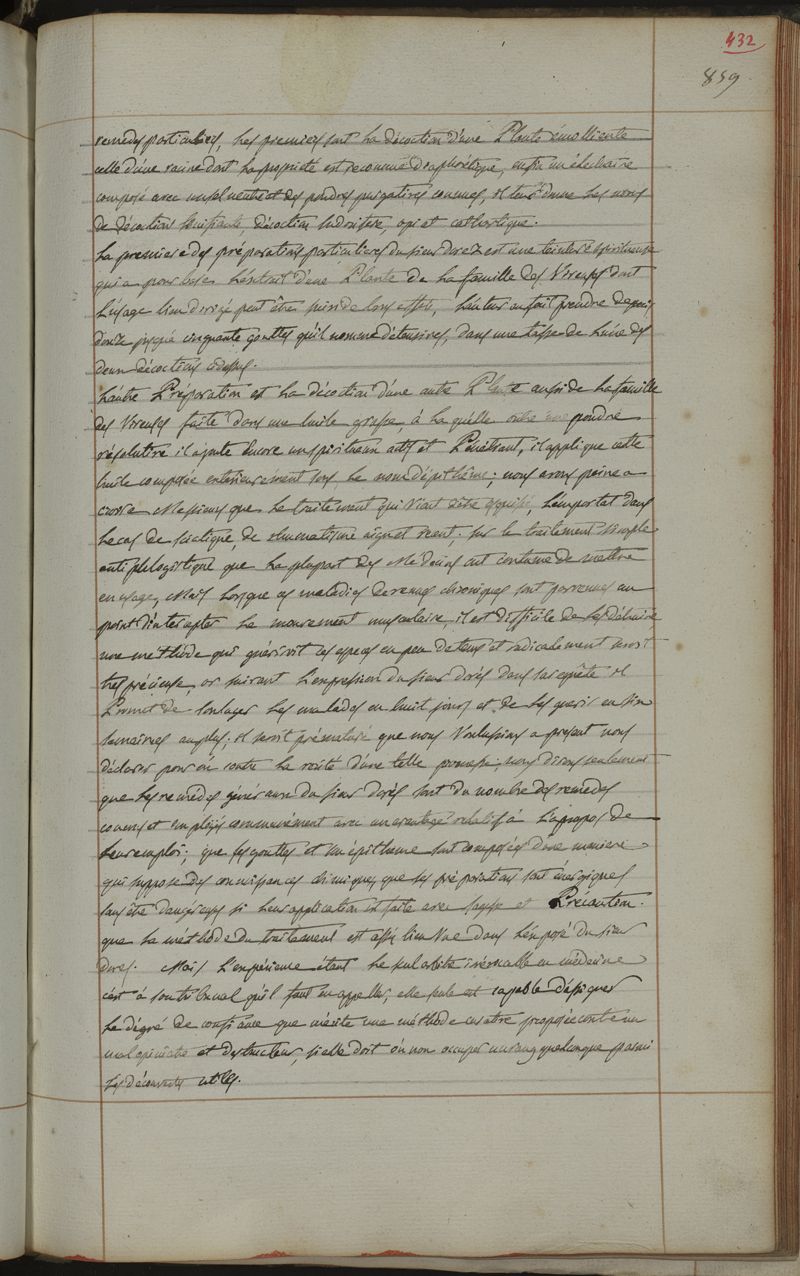 432
859
remèdes particuliers, les premiers sont la décoction d'une Plante émolliente
celle d'une racine dont la propriété est reconnue diaphorétique, enfin un électuaire
composé avec un sel neutre et des poudres purgatives connues, il leur donne les noms
de décoction lénifiante, décoction sudorifère, opiat cathortique.
La première des préparations particulières du sieur dorez est une teinture spiritueuse
qui a pour base l'extrait d'une Plante de la famille des Vireuses dont
l'usage bien dirigé peut être suivi de bons effets, l'auteur en fait prendre depuis
douze jusqu'à cinquante gouttes qu'il nomme détensives, dans une tasse de l'une des
deux décoctions cidessus.
L'autre Préparation est la décoction d'une autre Plante aussi de la famille
des Vireuses faite dans une huile grasse, à laquelle outre une poudre
résolutive il ajoute encore un spiritueux actif et Pénétrant, il applique cette
huile composée extérieurement sous le nom d'épithème; nous avons peine a
croire Messieurs que le traitement qui vient d'être esquissé, l'emportat dans
le cas de sciatique, de rhumatisme aigu et récent, sur le traitement simple
antiphlogistique que la plupart des Médecins ont coutume de mettre
en usage, Mais lorsque ces maladies devenues chroniques sont parvenues au
point d'intercepter le mouvement musculaire, il est difficile de les détruire
une méthode qui guérirait ces espèces en peu de tems et radicalement seroit
très précieuse, or suivant l'expression du sieur dorés dans sa requête il
Promet de soulager les malades en huit jours et de les guérir en six
semaines au plus; il seroit prématuré que nous Voulussions a présent nous
déclarer pour ou contre la vérité d'une telle promesse, nous dirons seulement
que les remèdes généraux du sieur dorés sont du nombre des remèdes
connus et employés communément avec un avantage relatif à l'apropos de
leur emploi; que ses gouttes et son épithème sont composées d'une manière
qui suppose des connaissances chimiques, que ses préparations sont énergiques
sans être dangereuses si leur application est faite avec sagesse et Précaution.
que la méthode du traitement est assés bien Vue dans l'exposé du sieur
dorés. Mais l'expérience étant le seul arbitre irrévocable en médecine
c'est à son tribunal qu'il faut en appeller, elle seule est capable d'assigner
le dégré de confiance que mérite une méthode curative proposée contre un
mal opiniâtre et destructeur, si elle doit ou non occuper un rang quelconque parmi
les découvertes utiles.